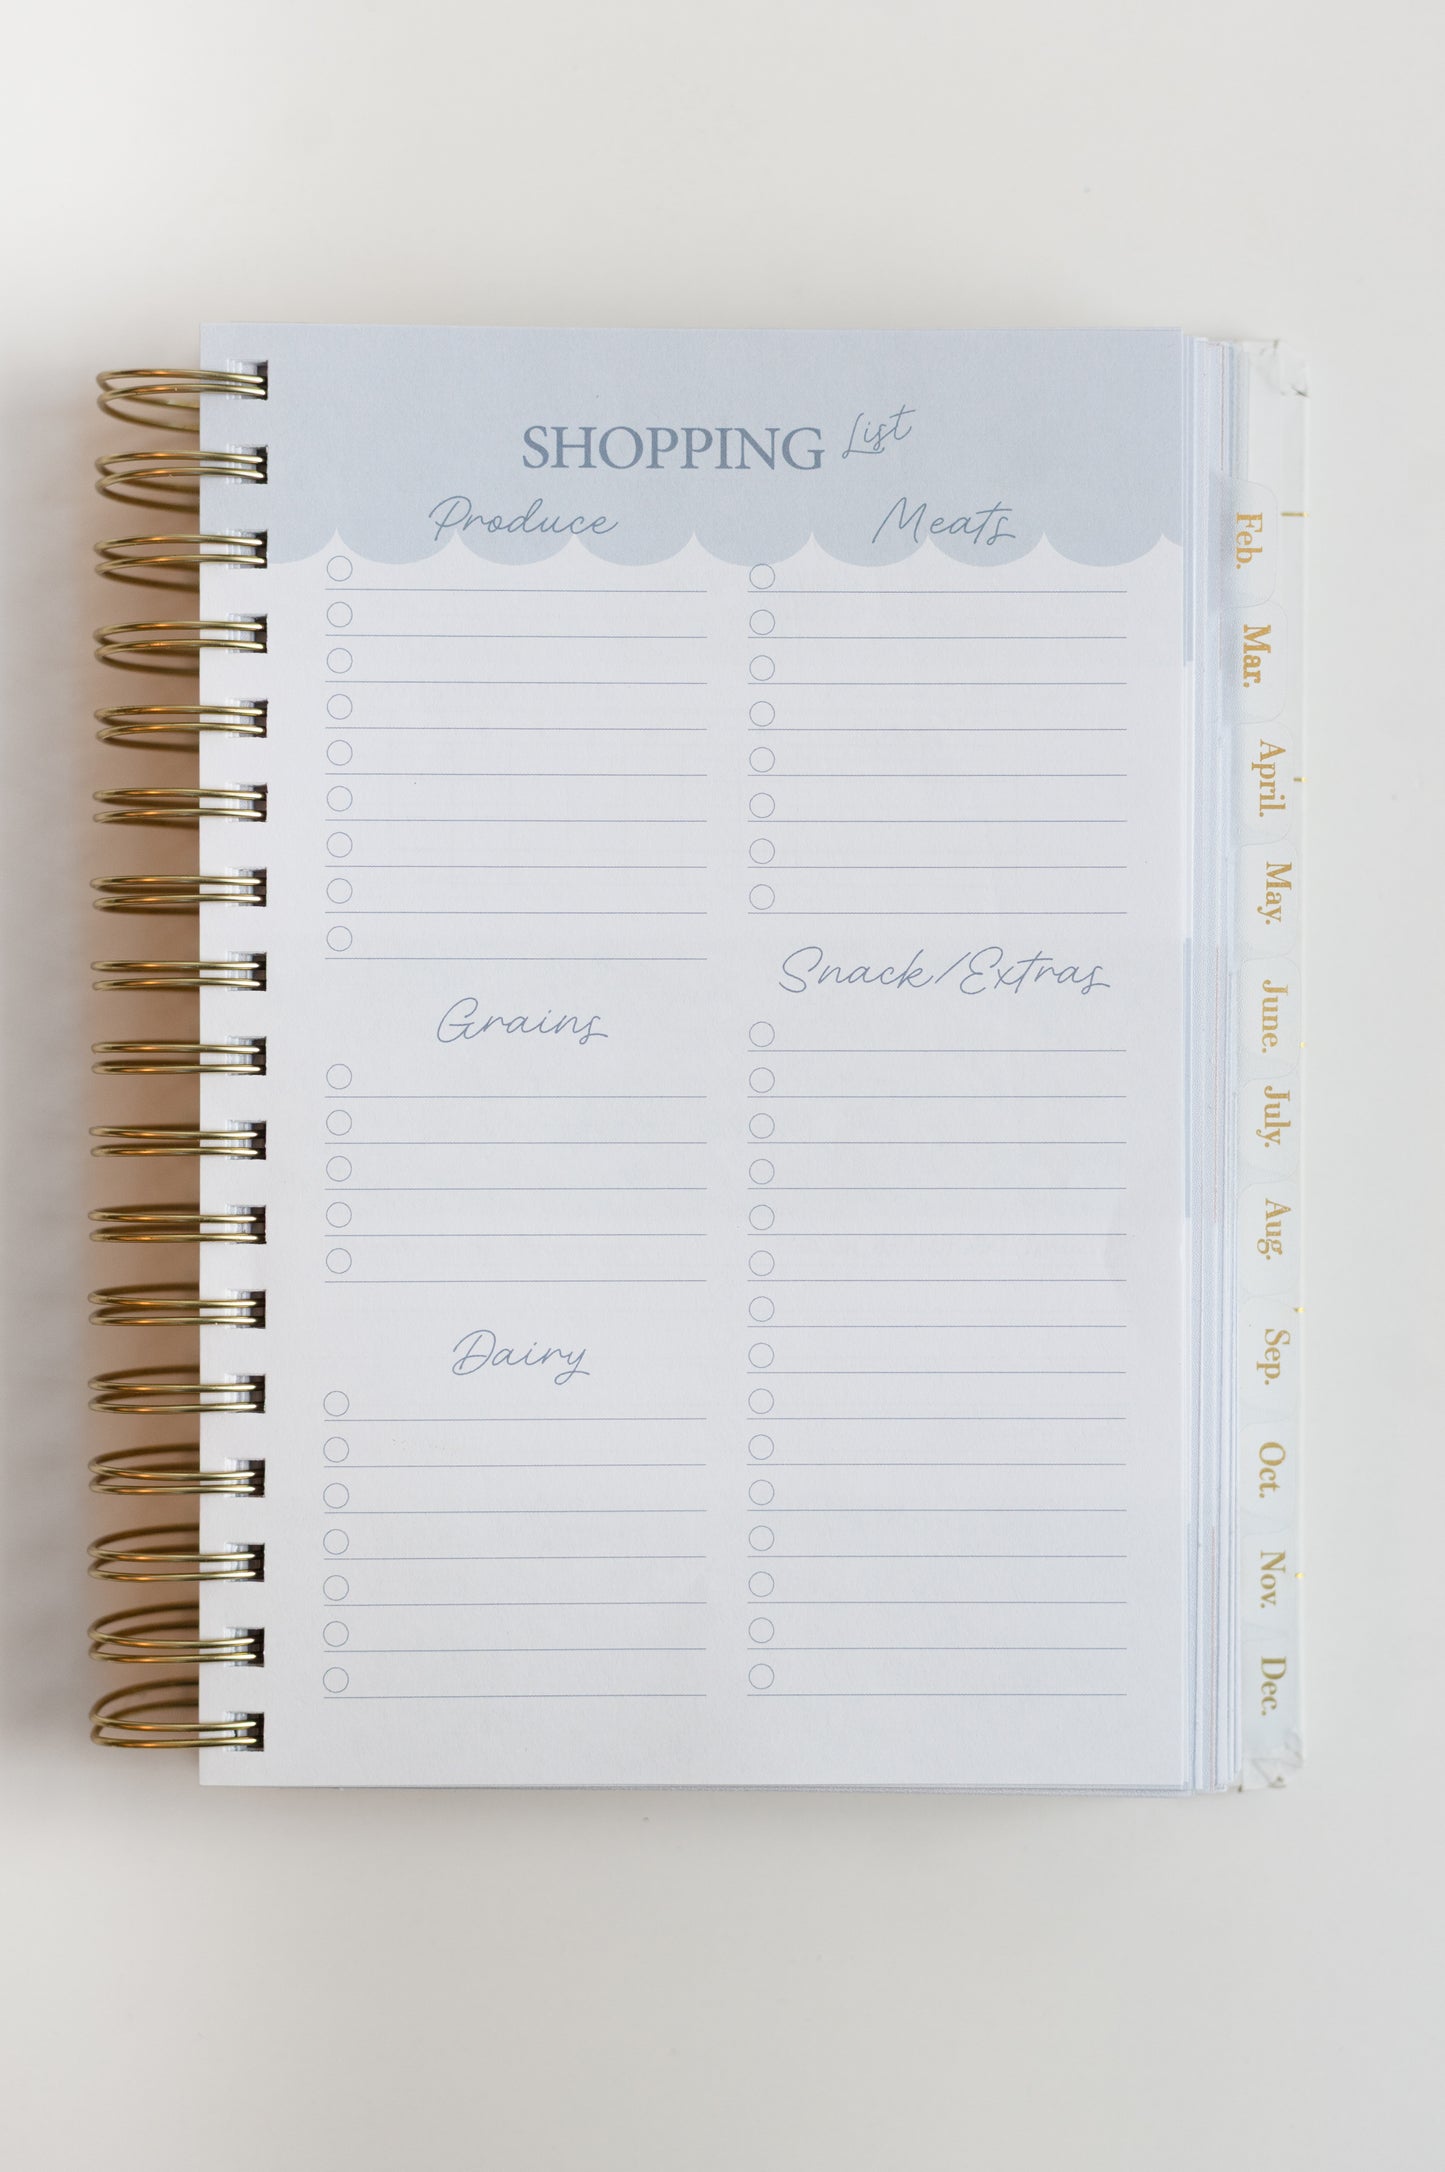 SHOPPING List
Produce
Grains
Dairy
Meats
Snack/Extras
Feb.
Mar.
April.
May.
June.
July.
Aug.
Sep.
Oct.
Nov.
Dec.